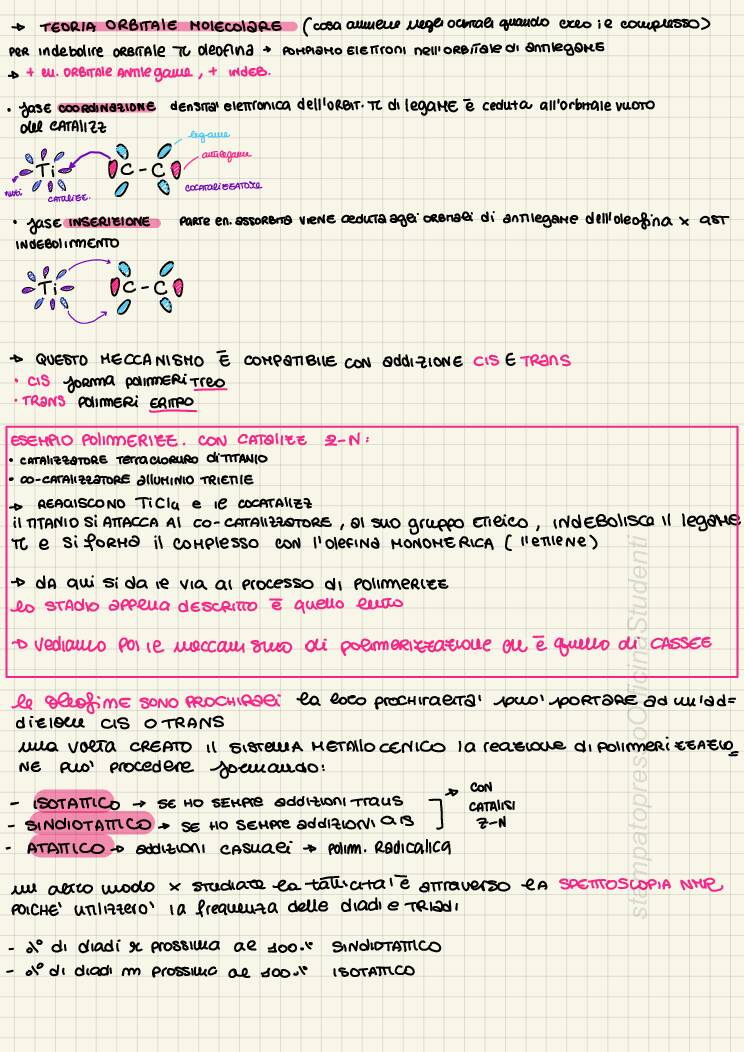 → TEORIA ORBITALE MOLECOLARE (cosa avviene negli orbitali quando creo il complesso)
PER indebolire ORBITALE π oleofina → POMPIAMO ELETTRONI nell'ORBITALE di ANTILEGAME
→ + en. ORBITALE ANTILEGAME, + INDEB.
• fase COORDINAZIONE densità elettronica dell'ORBIT. π di legAME è ceduta all'orbitale VUOTO
del CATALIZZ
legame
antilegame
Ti C - C
vuoti CATALIZZ. COCATALIZZATORE
• fase INSERZIONE PARTE en. ASSORBITA VIENE ceduta agli ORBITALI di ANTILEGAME dell'oleofina x QST
INDEBOLIMENTO
Ti C - C
→ QUESTO MECCANISMO È COMPATIBILE CON addizione CIS E TRANS
• CIS forma POLIMERI TREO
• TRANS POLIMERI ERITRO
ESEMPIO POLIMERIZZ. CON CATALIZZ Z-N:
• CATALIZZATORE TETRACLORURO di TITANIO
• CO-CATALIZZATORE alluminio TRIETILE
→ REAGISCONO TiCl4 e il COCATALIZZ
il TITANIO SI ATTACCA Al CO-CATALIZZATORE, al suo gruppo etilico, INDEBOLISCE Il legAME
π e SI FORMA il COMPLESSO CON l'olefina MONOMERICA (l'etilene)
→ DA qui si da il via al processo di POLIMERIZZ
lo STADIO appena DESCRITTO è quello lento
→ Vediamo poi il meccanismo di polimerizzazione che è quello di CASSEE
le oleofine SONO PROCHIRALI la loro prochiralità può PORTARE ad un'ad=
dizione CIS O TRANS
una volta CREATO il SISTEMA METALLOCENICO la reazione di POLIMERIZZAZIO_
NE può procedere formando:
- ISOTATTICO → SE HO SEMPRE addizioni TRANS
- SINDIOTATTICO → SE HO SEMPRE addizioni CIS
→ CON
CATALISI
Z-N
- ATATTICO → addizioni CASUALI → POLIM. RADICALICA
un altro modo x studiare la tatticità è attraverso la SPETTROSCOPIA NMR,
POICHÈ utilizzerò la frequenza delle diadi e TRIADI
- n° di diadi r prossima al 100% SINDIOTATTICO
- n° di diadi m prossimo al 100% ISOTATTICO
stampatopressoOfficinaStudenti